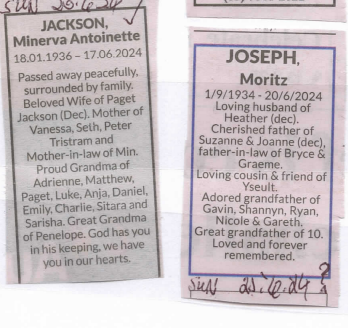 SUN 23.6.24 ✓
JACKSON,
Minerva Antoinette
18.01.1936 – 17.06.2024
Passed away peacefully,
surrounded by family.
Beloved Wife of Paget
Jackson (Dec). Mother of
Vanessa, Seth, Peter
Tristram and
Mother-in-law of Min.
Proud Grandma of
Adrienne, Matthew,
Paget, Luke, Anja, Daniel,
Emily, Charlie, Sitara and
Sarisha. Great Grandma
of Penelope. God has you
in his keeping, we have
you in our hearts.
JOSEPH,
Moritz
1/9/1934 - 20/6/2024
Loving husband of
Heather (dec).
Cherished father of
Suzanne & Joanne (dec),
father-in-law of Bryce &
Graeme.
Loving cousin & friend of
Yseult.
Adored grandfather of
Gavin, Shannyn, Ryan,
Nicole & Gareth.
Great grandfather of 10.
Loved and forever
remembered.
SUN 23.6.24 ?